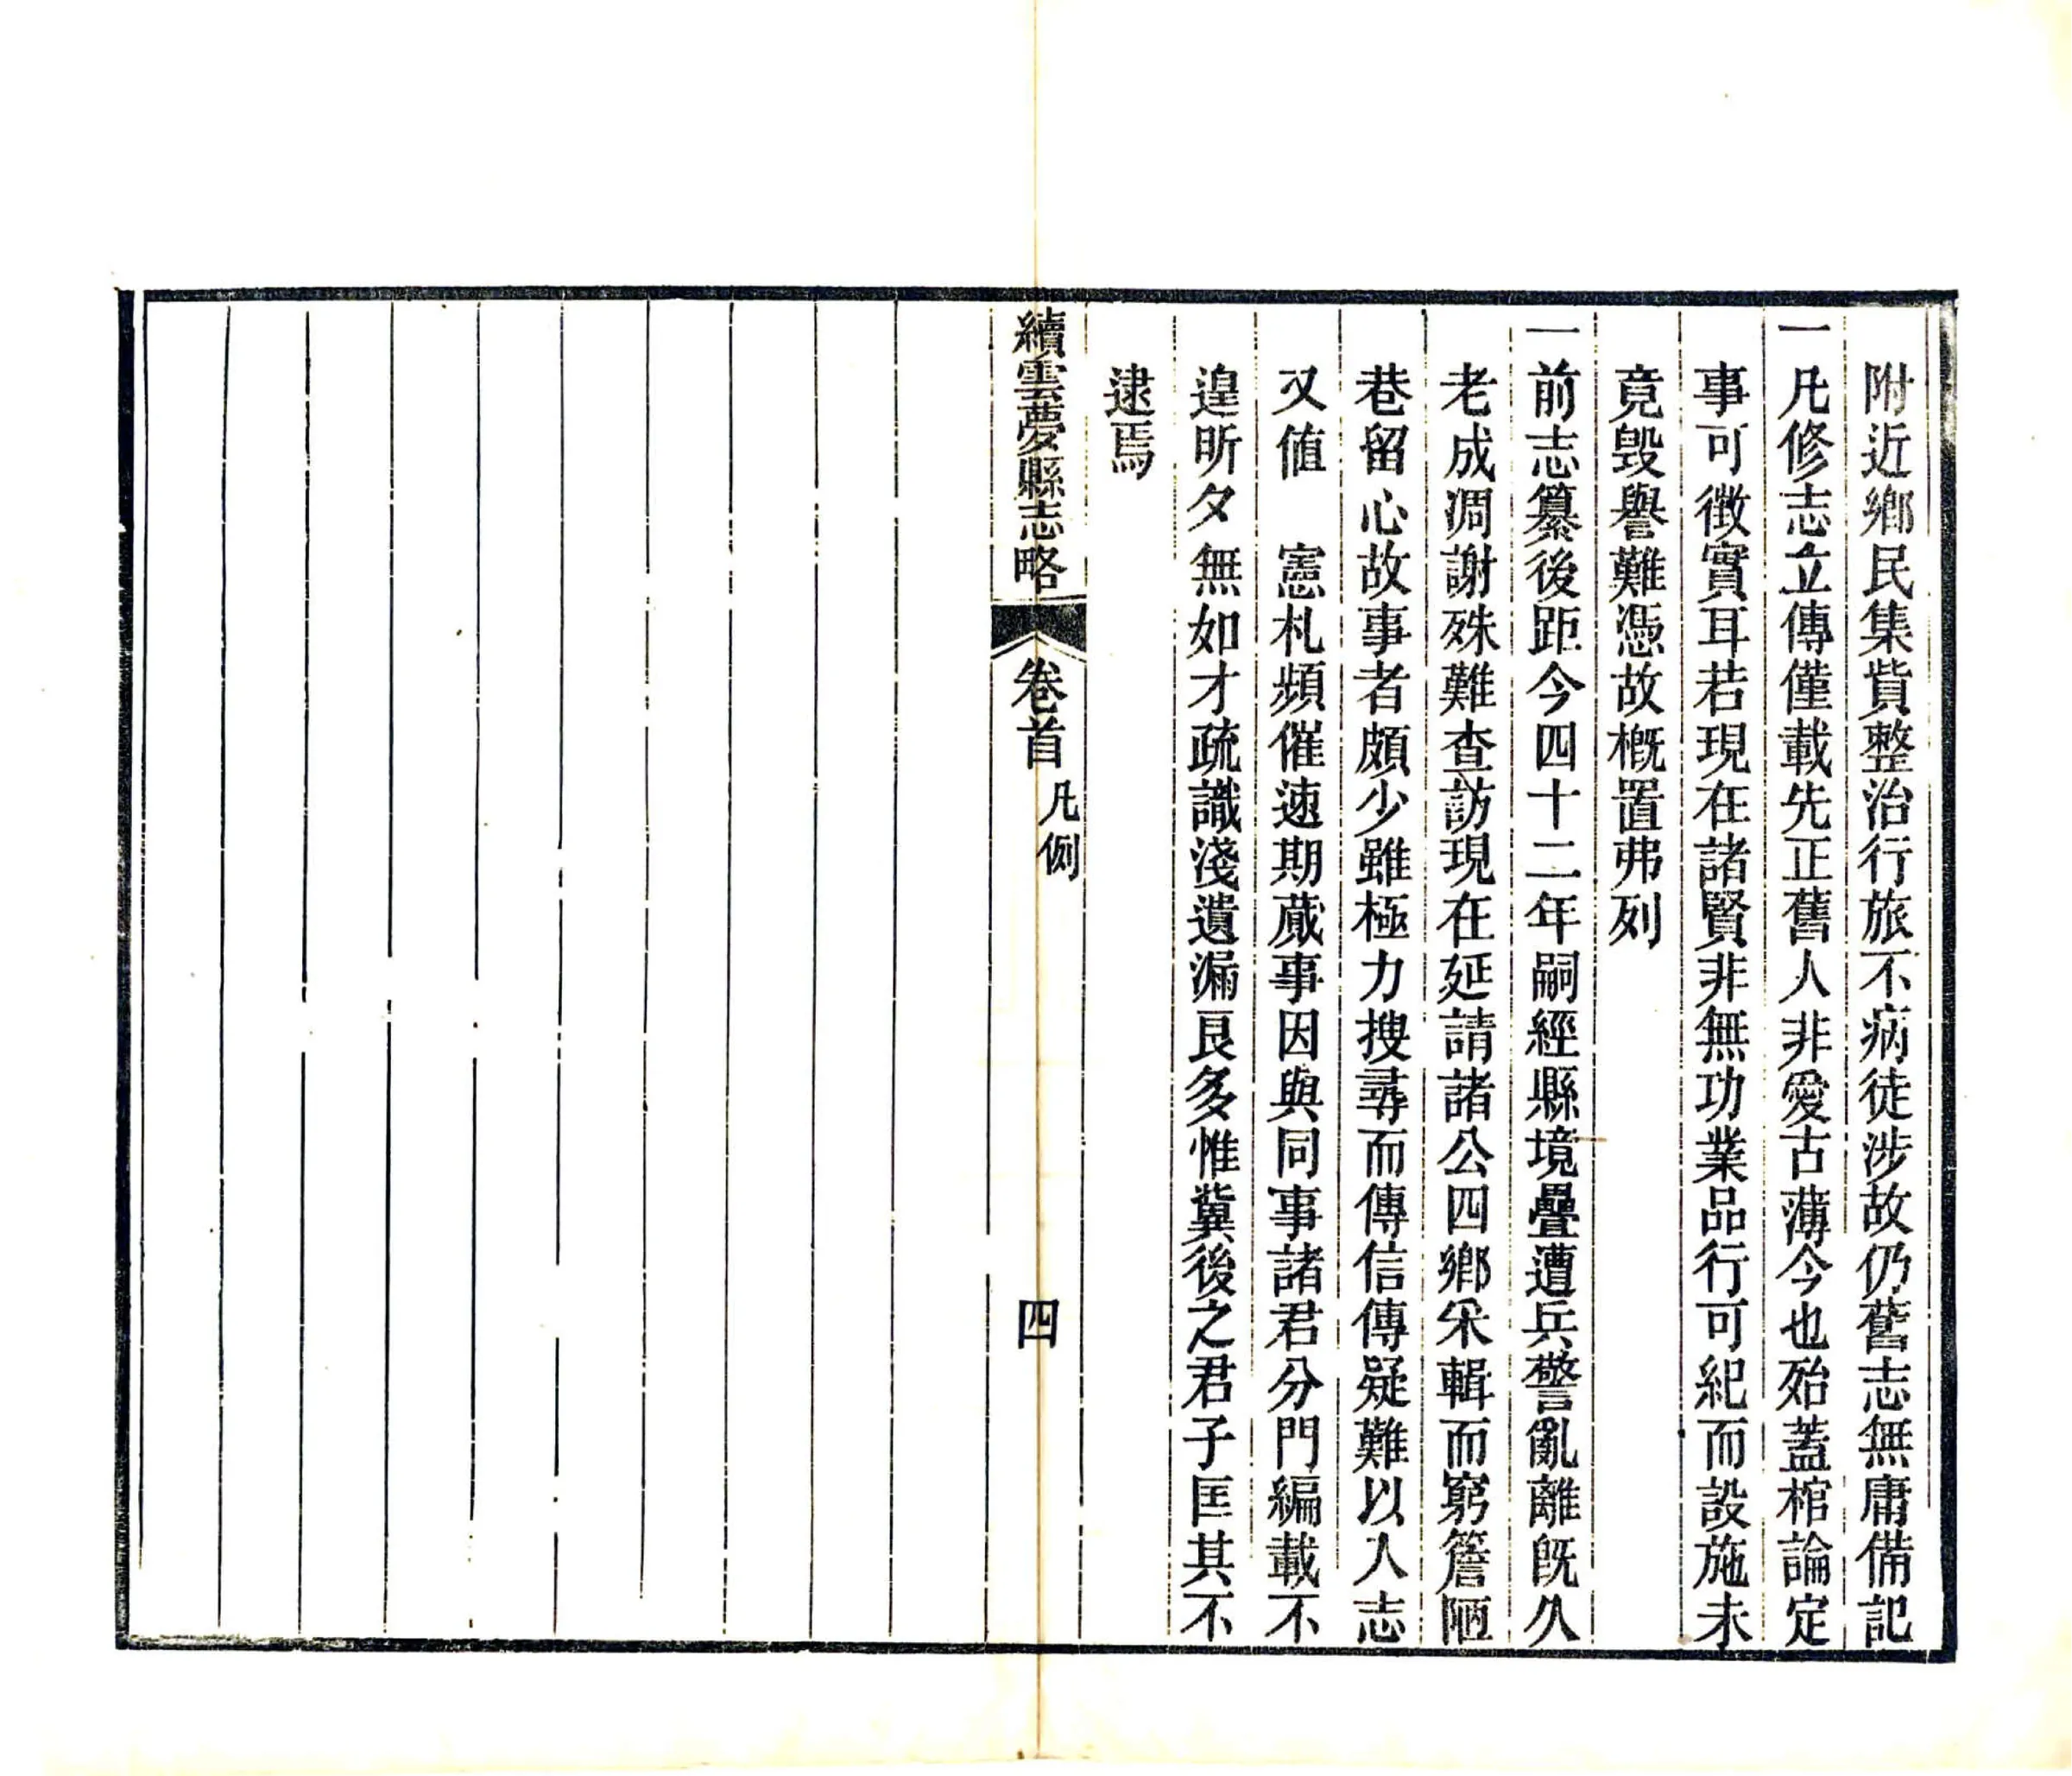 附近鄉民集貲整治行旅不病徒涉故仍舊志無庸備記
一凡修志立傳僅載先正舊人非愛古薄今也殆蓋棺論定
事可徵實耳若現在諸賢非無功業品行可紀而設施未
竟毀譽難憑故概置弗列
一前志纂後距今四十二年嗣經縣境疊遭兵警亂離旣久
老成凋謝殊難查訪現在延請諸公四鄉采輯而窮簷陋
巷留心故事者頗少雖極力搜尋而傳信傳疑難以入志
又值　憲札頻催速期蕆事因與同事諸君分門編載不
遑昕夕無如才疏識淺遺漏良多惟冀後之君子匡其不
逮焉
續雲夢縣志略
卷首
凡例
四